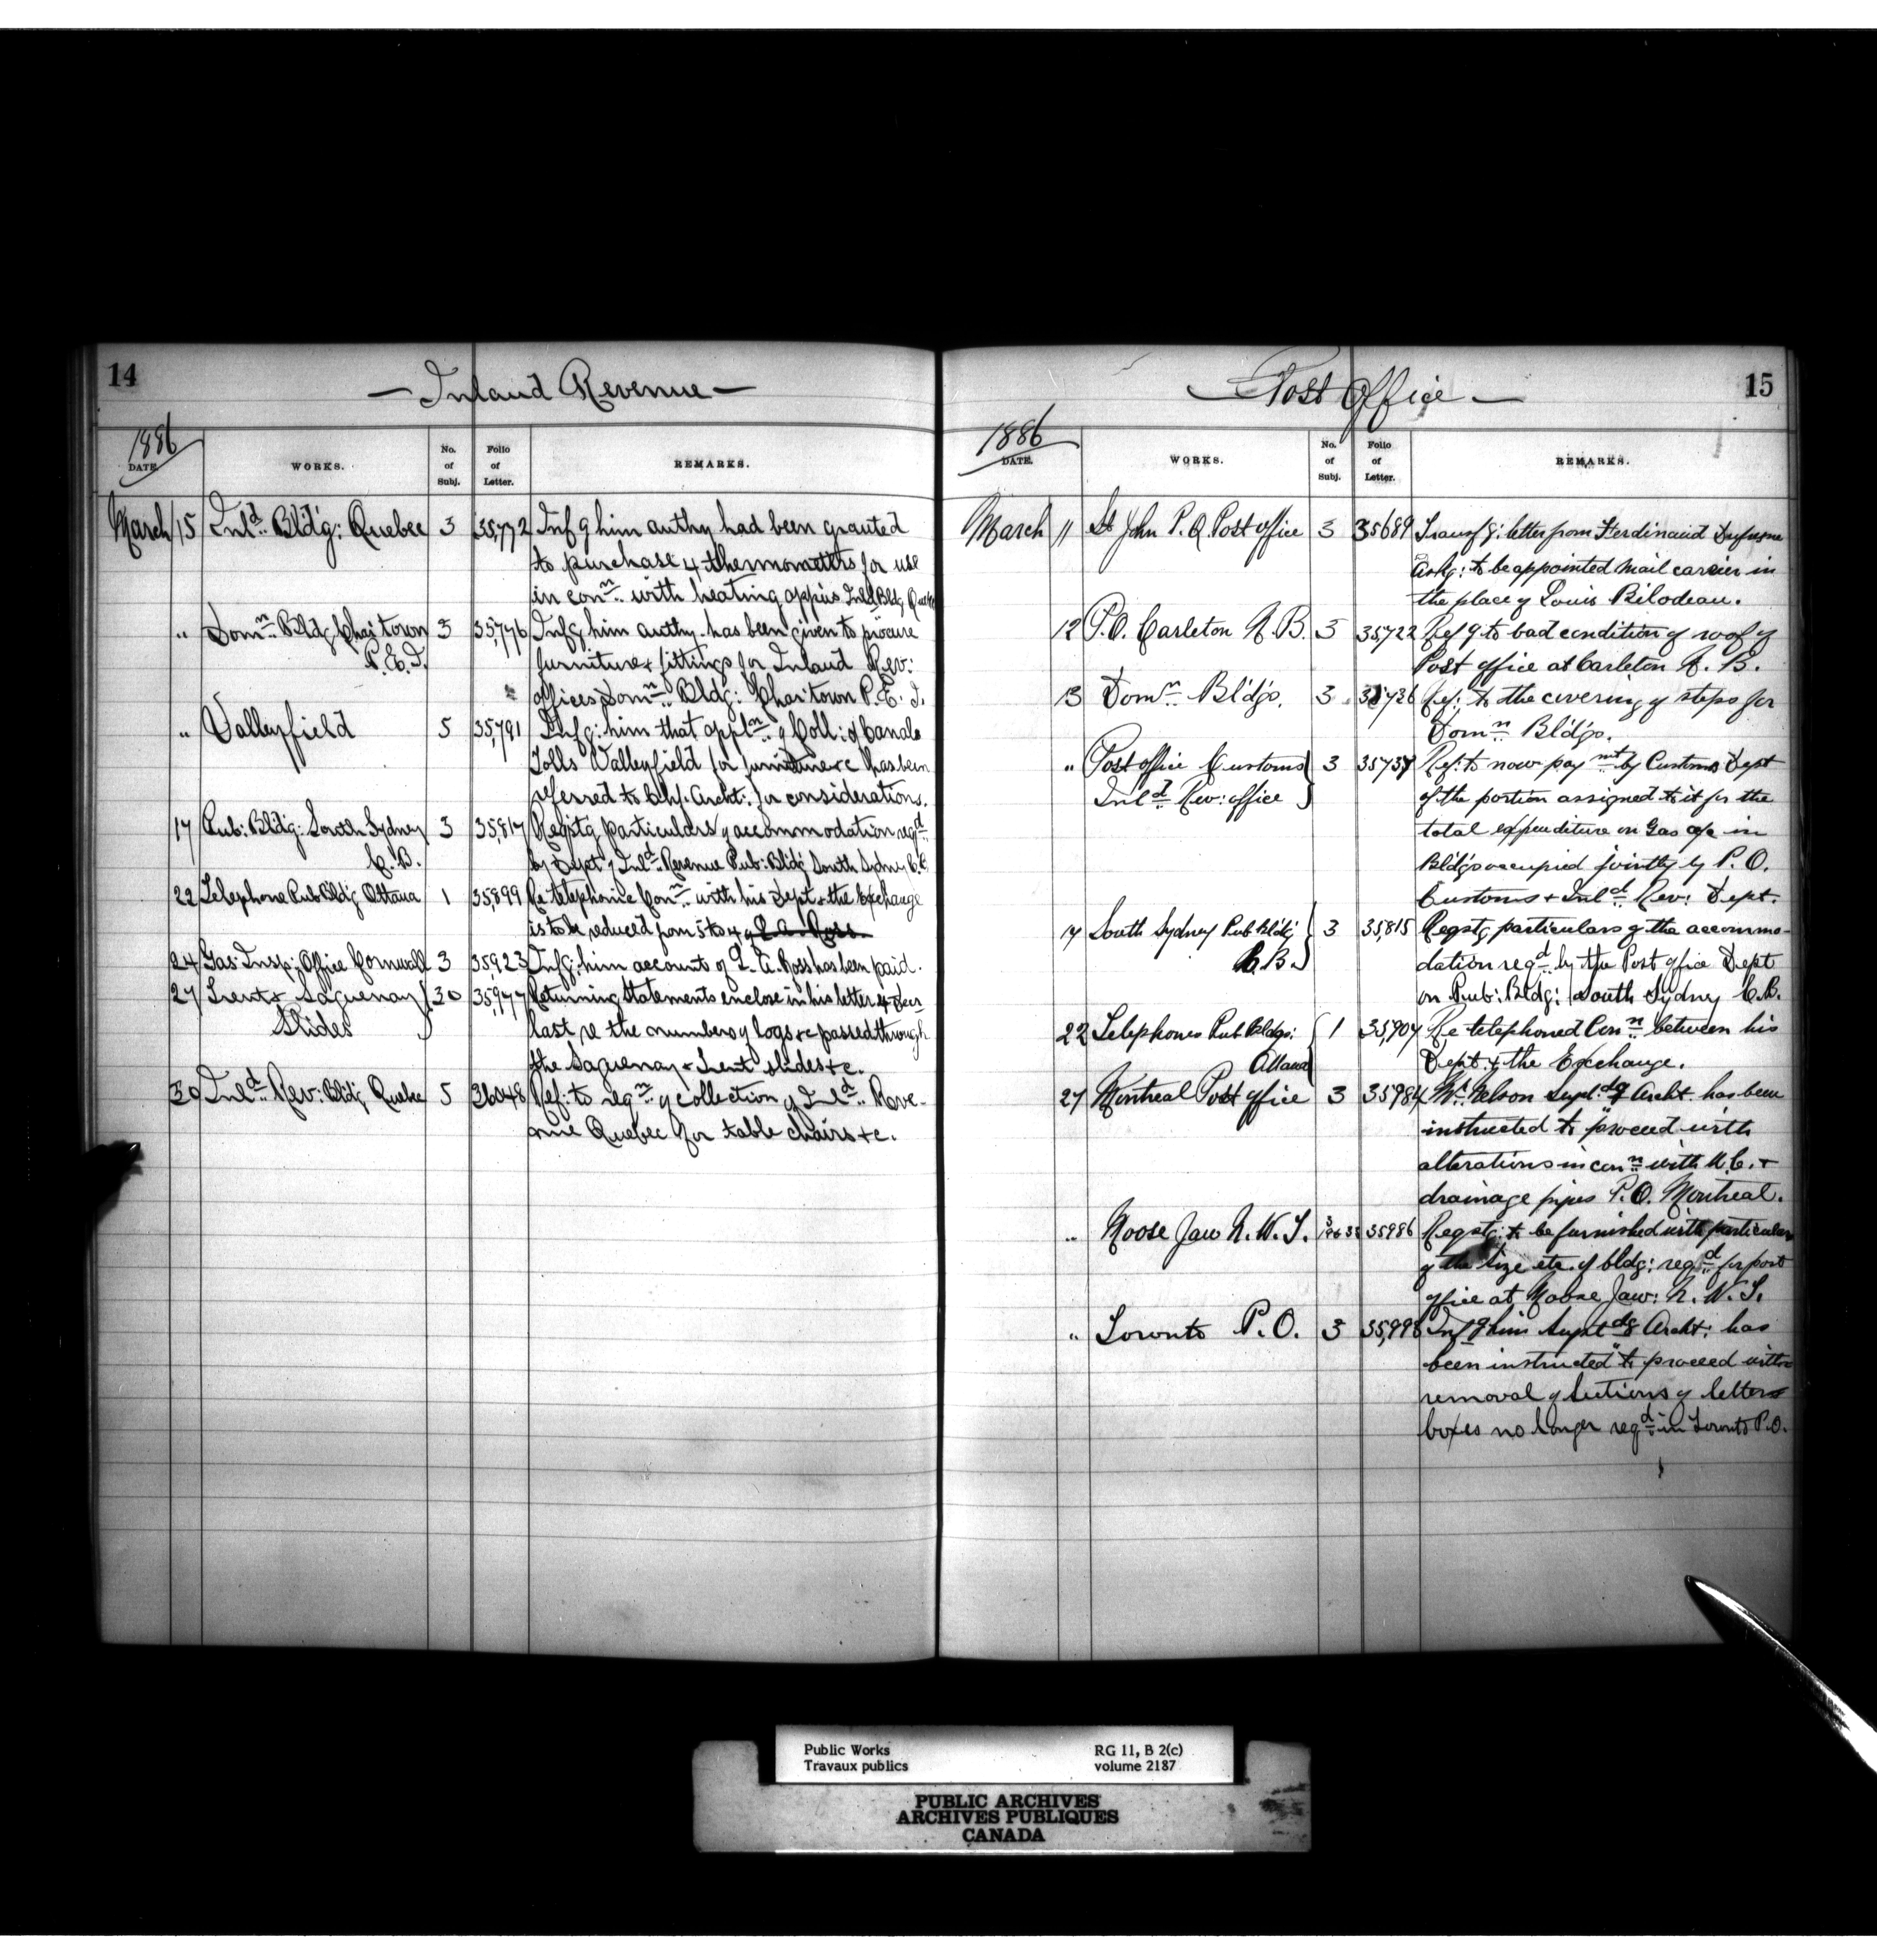 14
— Inland Revenue —
1886
DATE. WORKS. No. of Subj. Folio of Letter. REMARKS.
March 15 Inld. Bldg: Quebec 3 35,772 Infg him authy had been granted
to purchase 4 thermometers for use
in conn. with heating appus Inld Bldg Quebec
" Domn. Bldg Char: town 3 35,776 Infg him authy. has been given to procure
P.E.I. furniture & fittings for Inland Rev:
offices Domn. Bldg: Char:town P.E.I.
" Valleyfield 5 35,791 Infg: him that appln. of Coll: of Canals
Tolls Valleyfield for furniture &c has been
referred to Chf. Archt: for consideration.
17 Pub: Bldg: South Sydney 3 35,817 Reqstg particulars of accommodation reqd
C.B. by Dept of Inld. Revenue Pub: Bldg South Sydney C.B.
22 Telephone Pub Bldg Ottawa 1 35,899 Re telephonic Conn. with his Dept & the Exchange
is to be reduced from 5 to 4
24 Gas: Insp: Office Cornwall 3 35,923 Infg: him accounts of L. A. Ross has been paid.
27 Trent & Saguenay 30 35,977 Returning Statements enclose in his letter 4
Slides last re the number of logs &c passed through
the Saguenay & Trent slides &c.
30 Inld. Rev: Bldg Quebec 5 36048 Ref: to reqn. of collection of Inld. Reve-
nue Quebec for table chairs &c.
15
— Post Office —
1886
DATE. WORKS. No. of Subj. Folio of Letter. REMARKS.
March 11 St John P. Q. Post office 3 35689 Transfg: letter from Ferdinand Dufresne
Askg: to be appointed mail carrier in
the place of Louis Bilodeau.
12 P.O. Carleton N.B. 3 35,722 Refg to bad condition of roof of
Post office at Carleton N. B.
13 Domn. Bldgs. 3 35736 Ref: to the covering of steps for
Domn. Bldgs.
" Post office Customs 3 35737 Ref: to now paymt by Customs Dept
Inld. Rev: office of the portion assigned to it for the
total expenditure on Gas a/c in
Bldgs occupied jointly by P. O.
Customs & Inld Rev: Dept.
17 South Sydney Pub Bldg 3 35,815 Reqstg particulars of the accommo-
C.B. dation reqd by the Post office Dept
on Pub: Bldg: South Sydney C.B.
22 Telephones Pub Bldgs: 1 35,904 Re telephoned Conn. between his
Ottawa Dept. & the Exchange.
27 Montreal Post office 3 35984 Mr. Nelson Suptdg Archt. has been
instructed to proceed with
alterations in conn with W.C. &
drainage pipes P.O. Montreal.
" Moose Jaw N. W. T. 3 35986 Reqstg: to be furnished with particulars
of the size etc. of bldg: reqd for post
office at Moose Jaw: N. W. T.
" Toronto P.O. 3 35,998 Infg him Suptdg Archt: has
been instructed to proceed with
removal of sections of letter
boxes no longer reqd in Toronto P.O.
Public Works RG 11, B 2(c)
Travaux publics volume 2187
PUBLIC ARCHIVES
ARCHIVES PUBLIQUES
CANADA